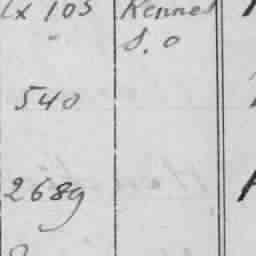 Lx 105 Kennel
S. O
540
2689